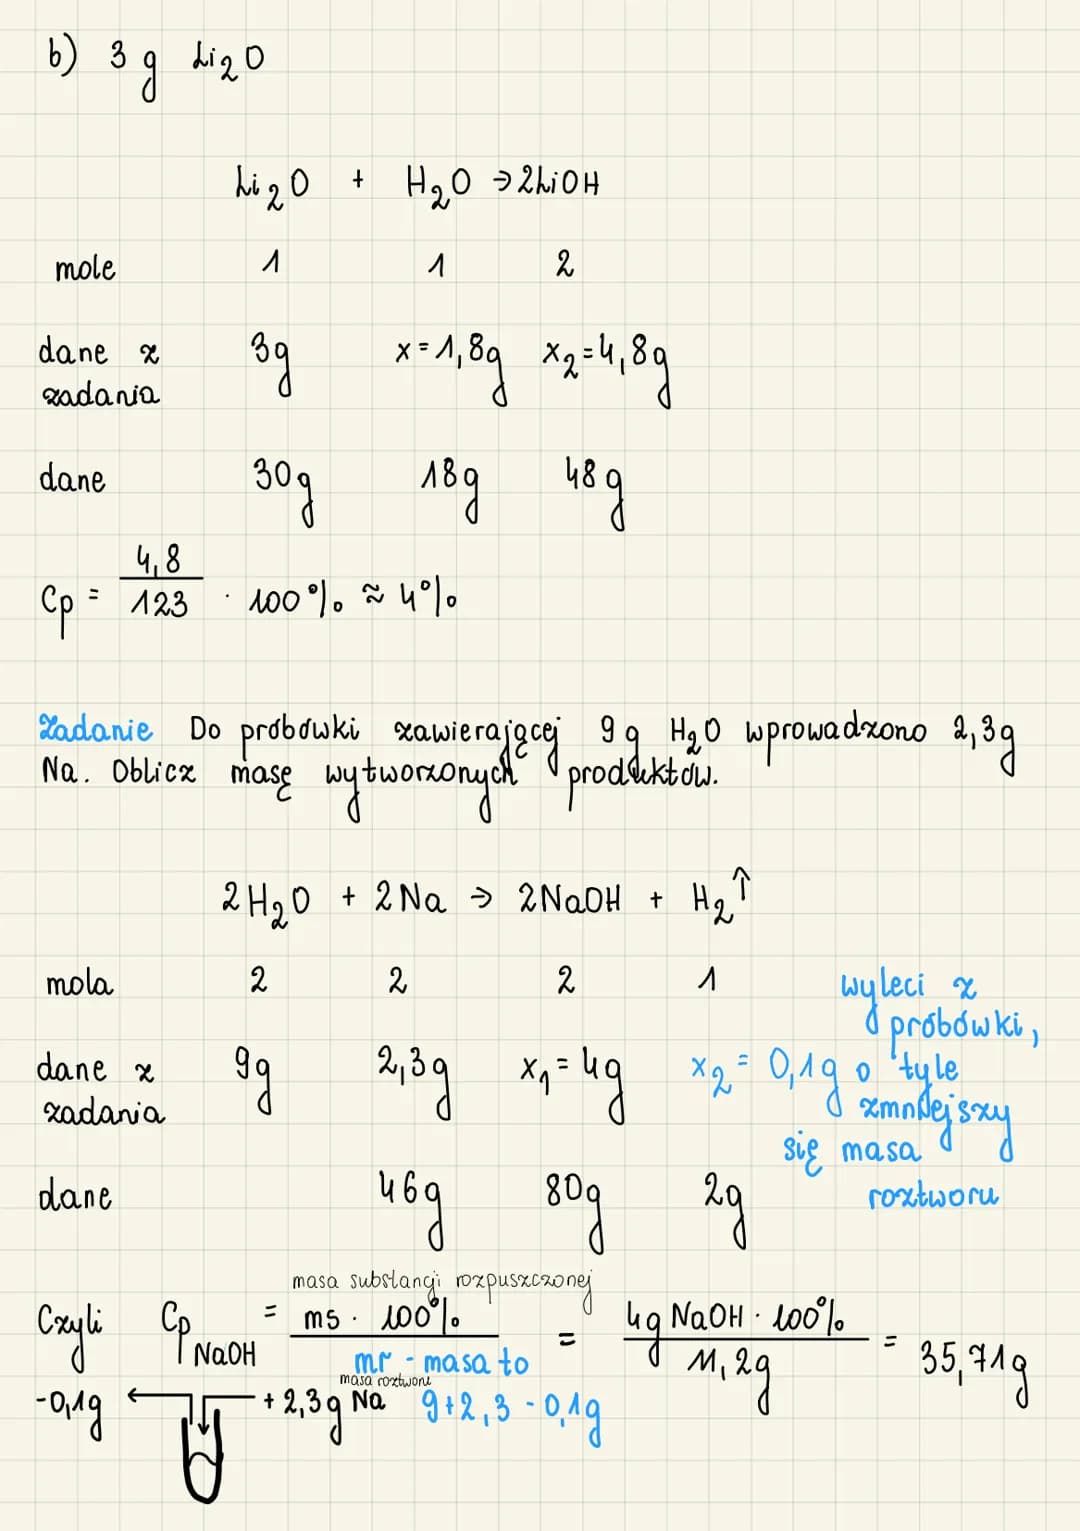 b) 3g Li₂O
Li₂O + H₂O → 2LiOH
mole 1 1 2
dane z zadania 3g x = 1,8g x₂ = 4,8g
dane 30g 18g 48g
Cp = 4,8 / 123 · 100% ≈ 4%
Zadanie Do probówki zawierającej 9g H₂O wprowadzono 2,3g
Na. Oblicz masę wytworzonych produktów.
2H₂O + 2Na → 2NaOH + H₂↑
mola 2 2 2 1
dane z zadania 9g 2,3g x₁ = 4g x₂ = 0,1g
wyleci z
probówki,
o tyle
zmniejszy
się masa
roztworu
dane 46g 80g 2g
masa substancji rozpuszczonej
Czyli Cp NaOH = ms · 100% / mr - masa to = 4g NaOH · 100% / 11,2g = 35,71g
masa roztworu
-0,1g + 2,3g Na 9+2,3 - 0,1g